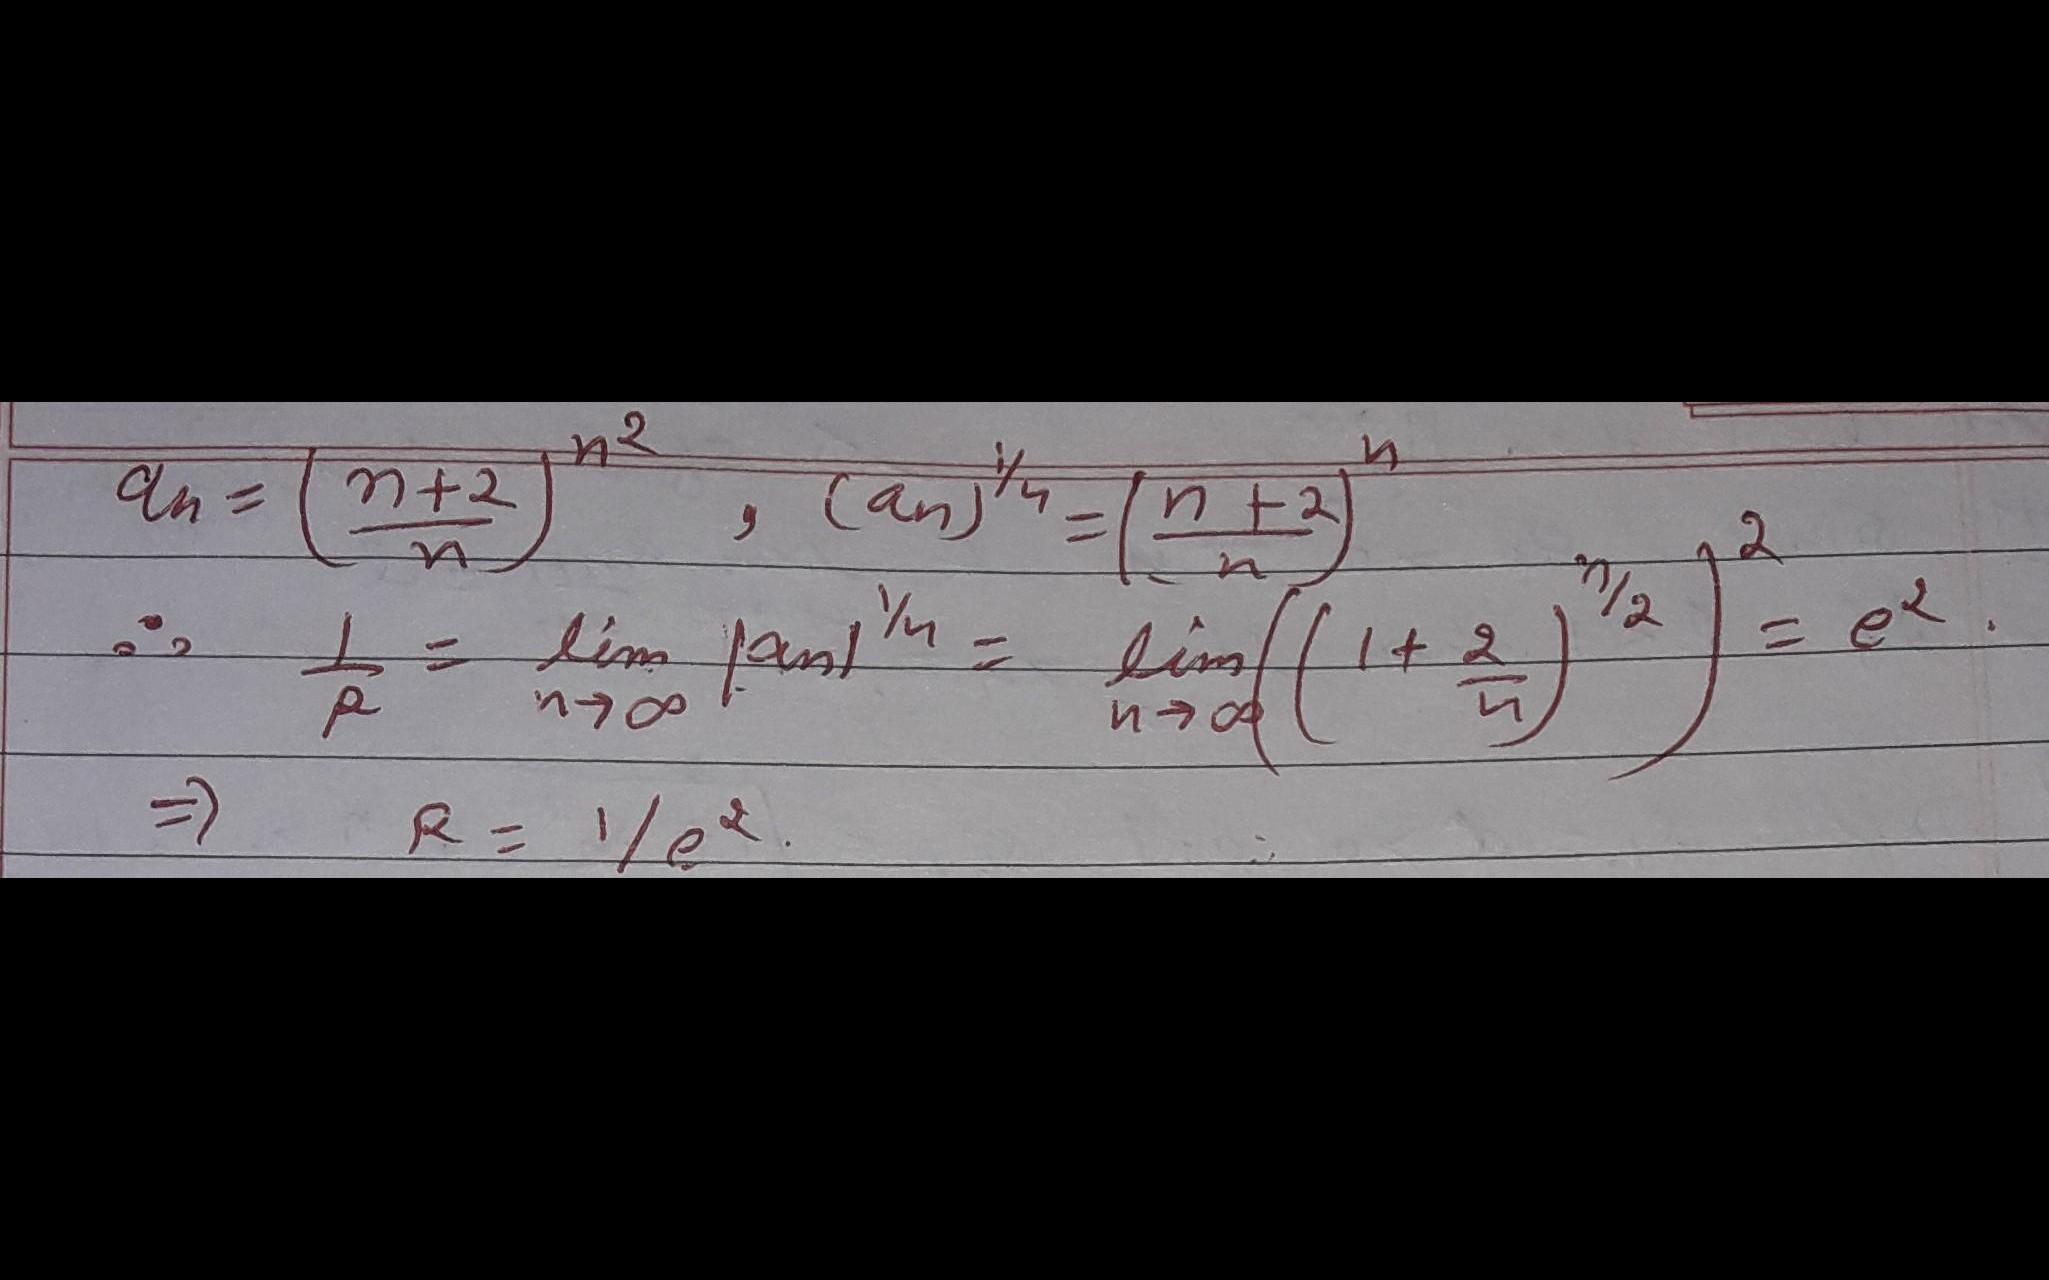 aₙ = ((n+2)/n)^(n²) , (aₙ)^(1/n) = ((n+2)/n)^n
∴ 1/R = lim_{n→∞} |aₙ|^(1/n) = lim_{n→∞} ((1 + 2/n)^(n/2))^2 = e².
⇒ R = 1/e².